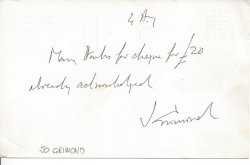 4 Aug
Many thanks for cheque for £20
already acknowledged
J Grimond
JO GRIMOND